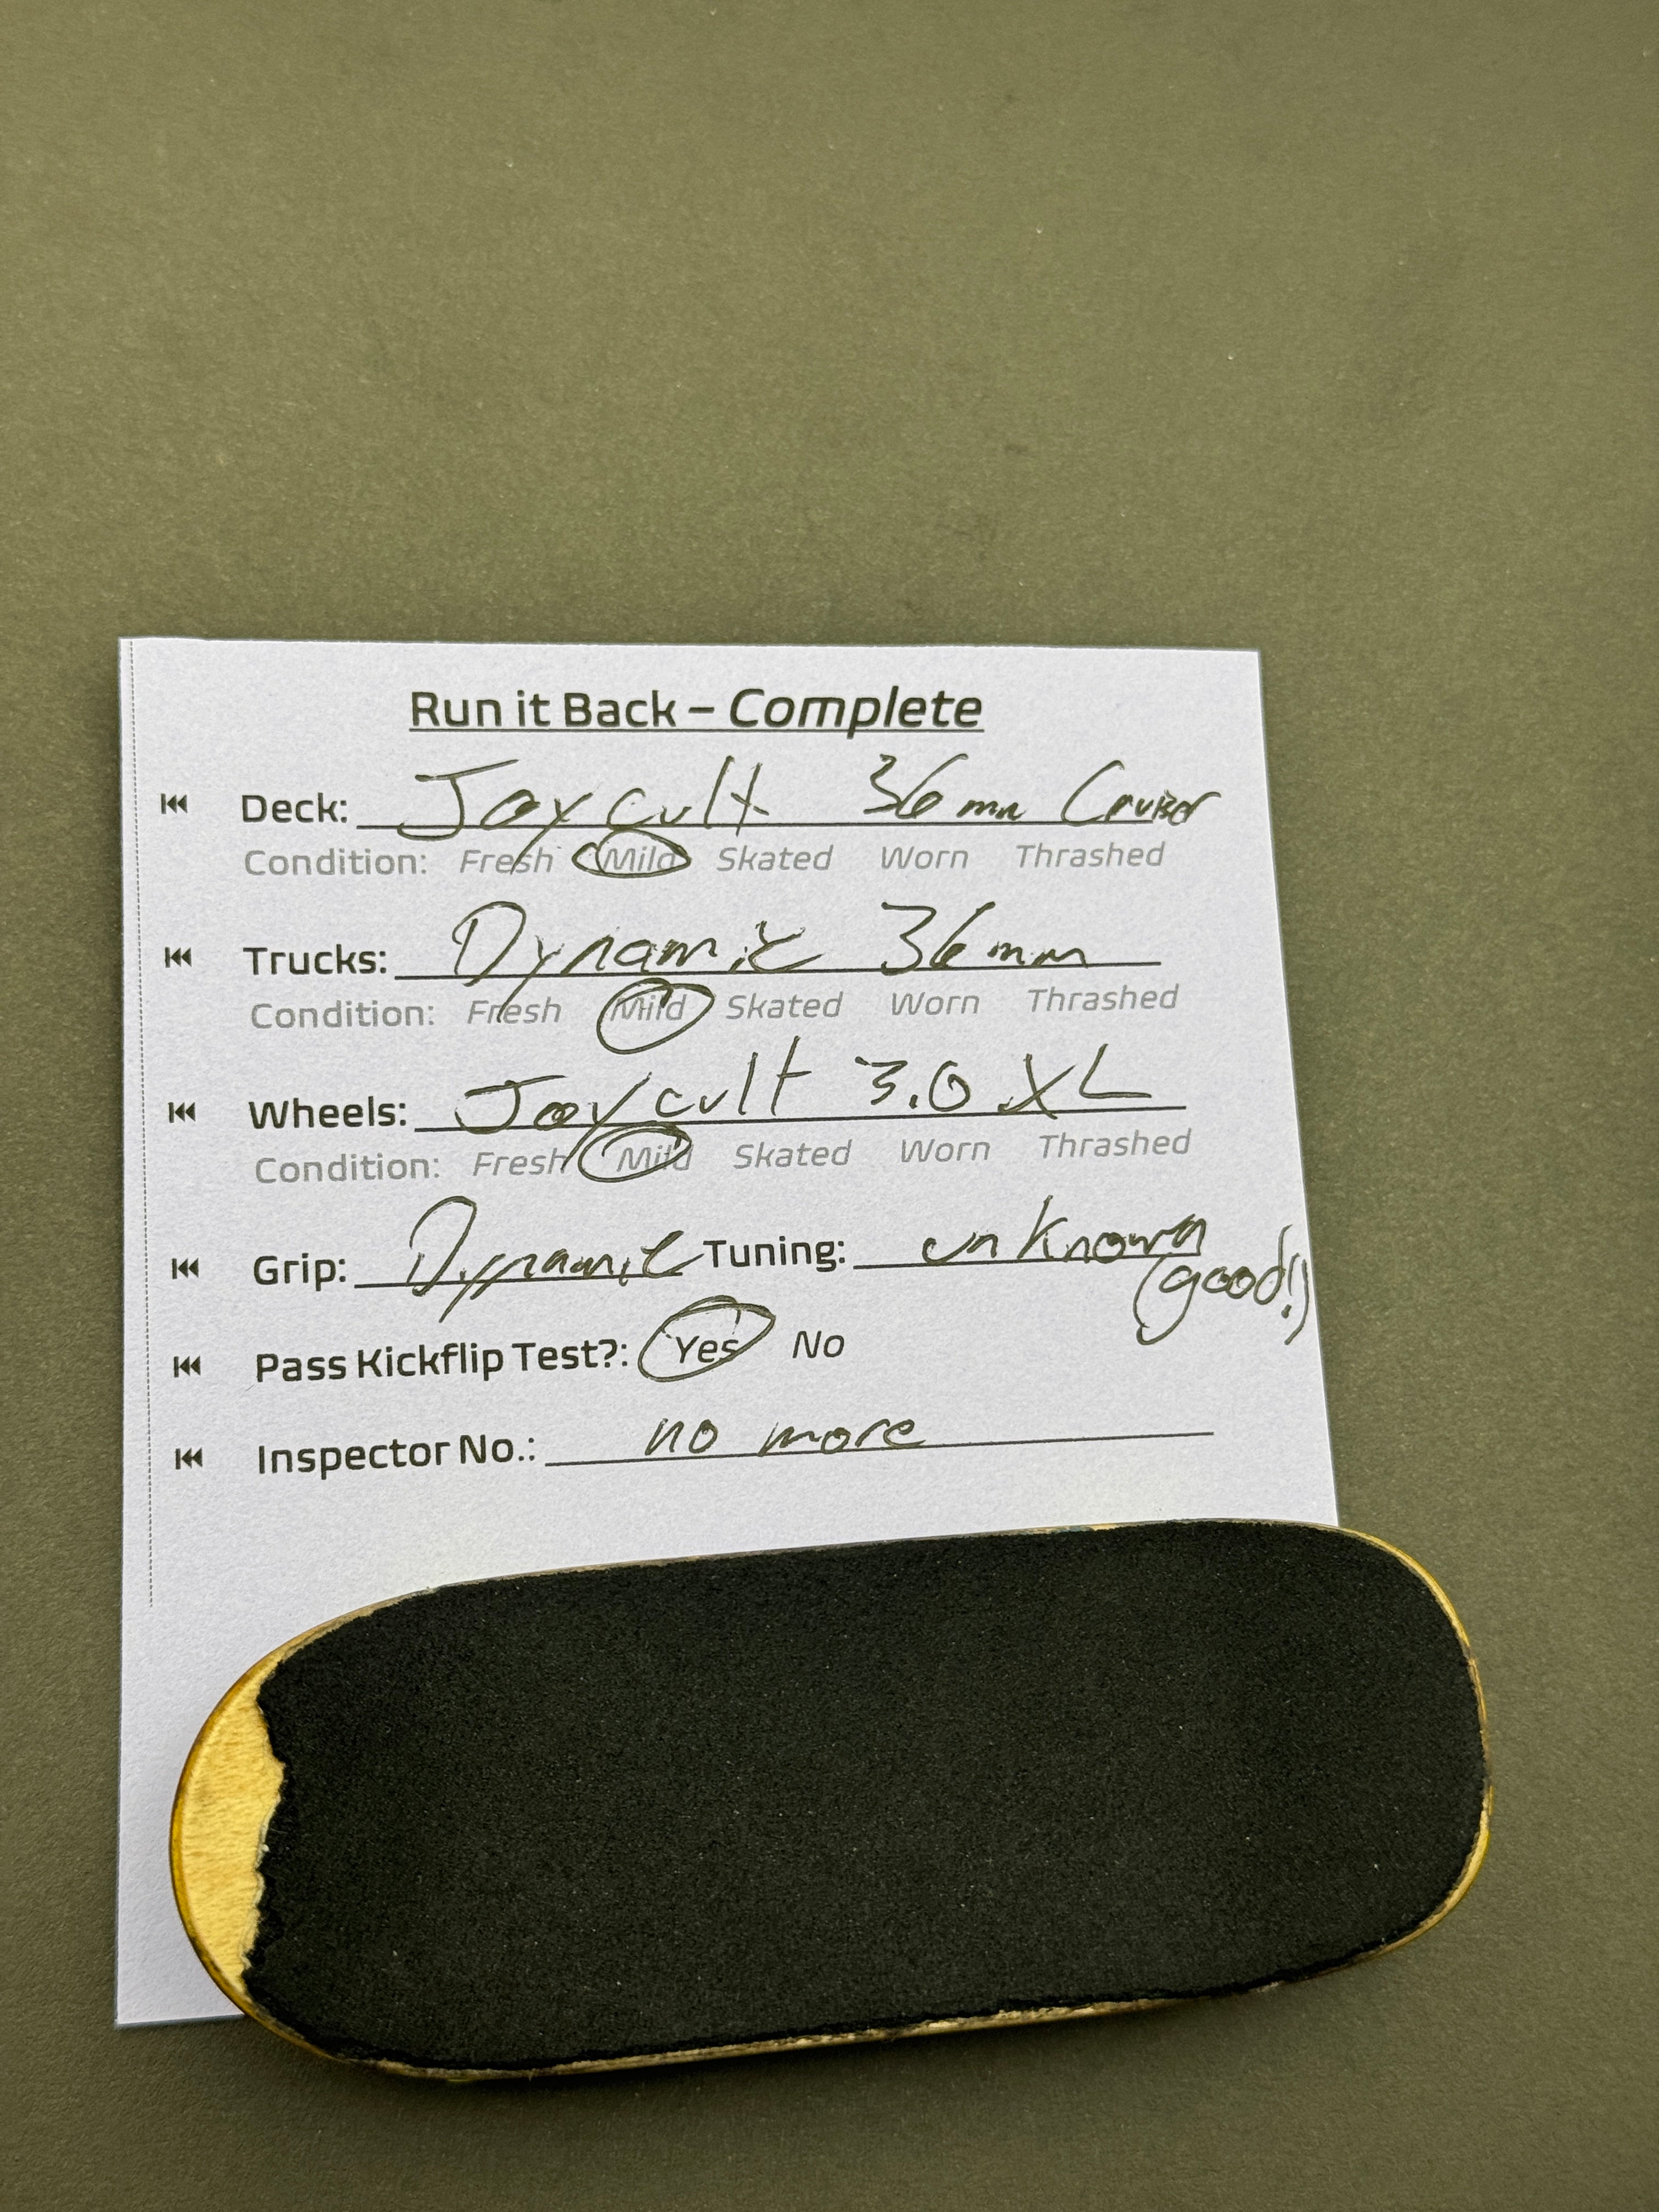 Run it Back – Complete
Deck: Joycult 36mm Cruiser
Condition: Fresh Mild Skated Worn Thrashed
Trucks: Dynamic 36mm
Condition: Fresh Mild Skated Worn Thrashed
Wheels: Joycult 3.0 XL
Condition: Fresh Mild Skated Worn Thrashed
Grip: Dynamic Tuning: unknown
(good!)
Pass Kickflip Test?: Yes No
Inspector No.: no more